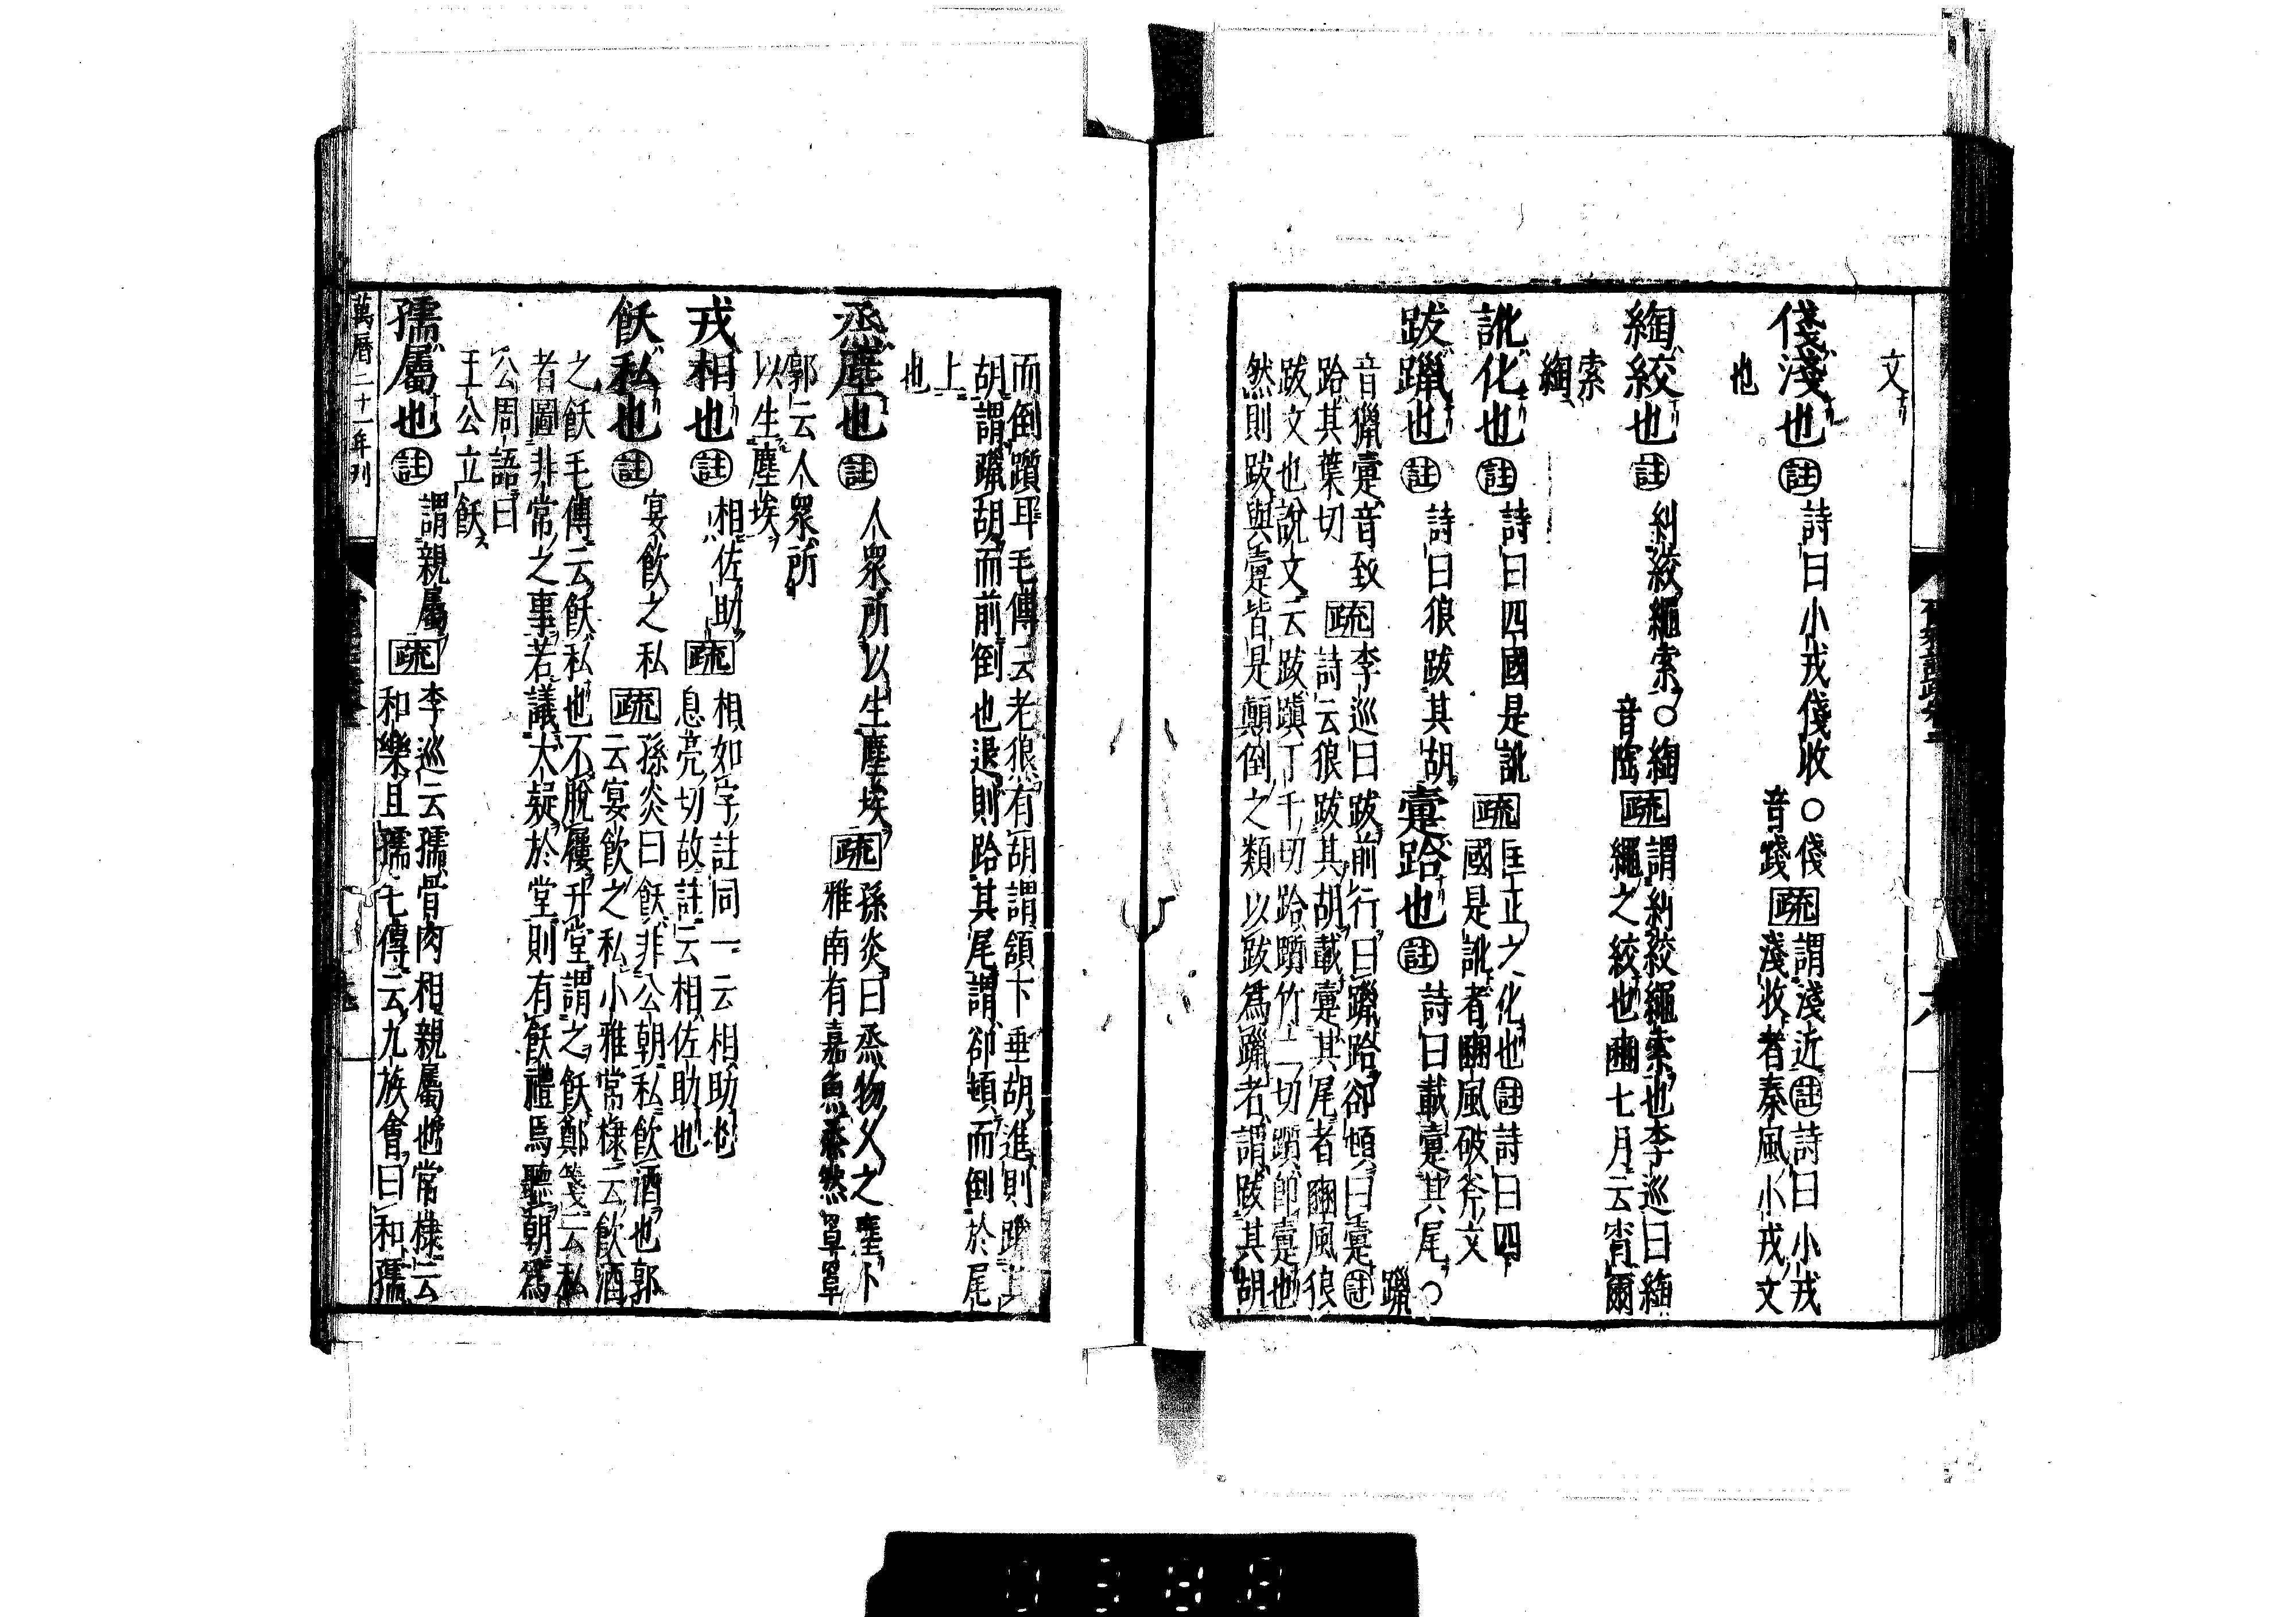 文
俴淺也註詩曰小戎俴收○俴
音踐疏謂淺近註詩曰小戎
淺收者秦風小戎文
也
綯絞也註糾絞繩索○綯
音陶疏謂糾絞繩索也李巡曰綯
繩之絞也豳七月云宵爾
索
綯
訛化也註詩曰四國是訛疏匡正之化也註詩曰四
國是訛者豳風破斧文
跋躐也註詩曰狼跋其胡疐跲也註詩曰載疐其尾○
躐
音獵疐音致疏李巡曰跋前行曰躐跲卻頓曰疐註
跲其葉切詩云狼跋其胡載疐其尾者豳風狼
跋文也說文云跋蹎丁千切跲躓竹二切躓即疐也
然則跋與疐皆是顛倒之類以跋爲躐者謂跋其胡
而倒躓耳毛傳云老狼有胡謂頷下垂胡進則躐其
胡謂躐胡而前倒也退則跲其尾謂卻頓而倒於尾
上
也
烝塵也註人衆所以生塵埃疏孫炎曰烝物久之塵小
雅南有嘉魚烝然罩罩
郭云人衆所
以生塵埃
戎相也註相佐助疏相如字註同一云相助也
息亮切故註云相佐助也
飫私也註宴飲之私疏孫炎曰飫非公朝私飲酒也郭
云宴飲之私小雅常棣云飲酒
之飫毛傳云飫私也不脫屨升堂謂之飫鄭箋云私
者圖非常之事若議大疑於堂則有飫禮焉聽朝爲
公周語曰
王公立飫
孺屬也註謂親屬疏李巡云孺骨肉相親屬也常棣云
和樂且孺毛傳云九族會曰和孺
萬曆二十一年刊